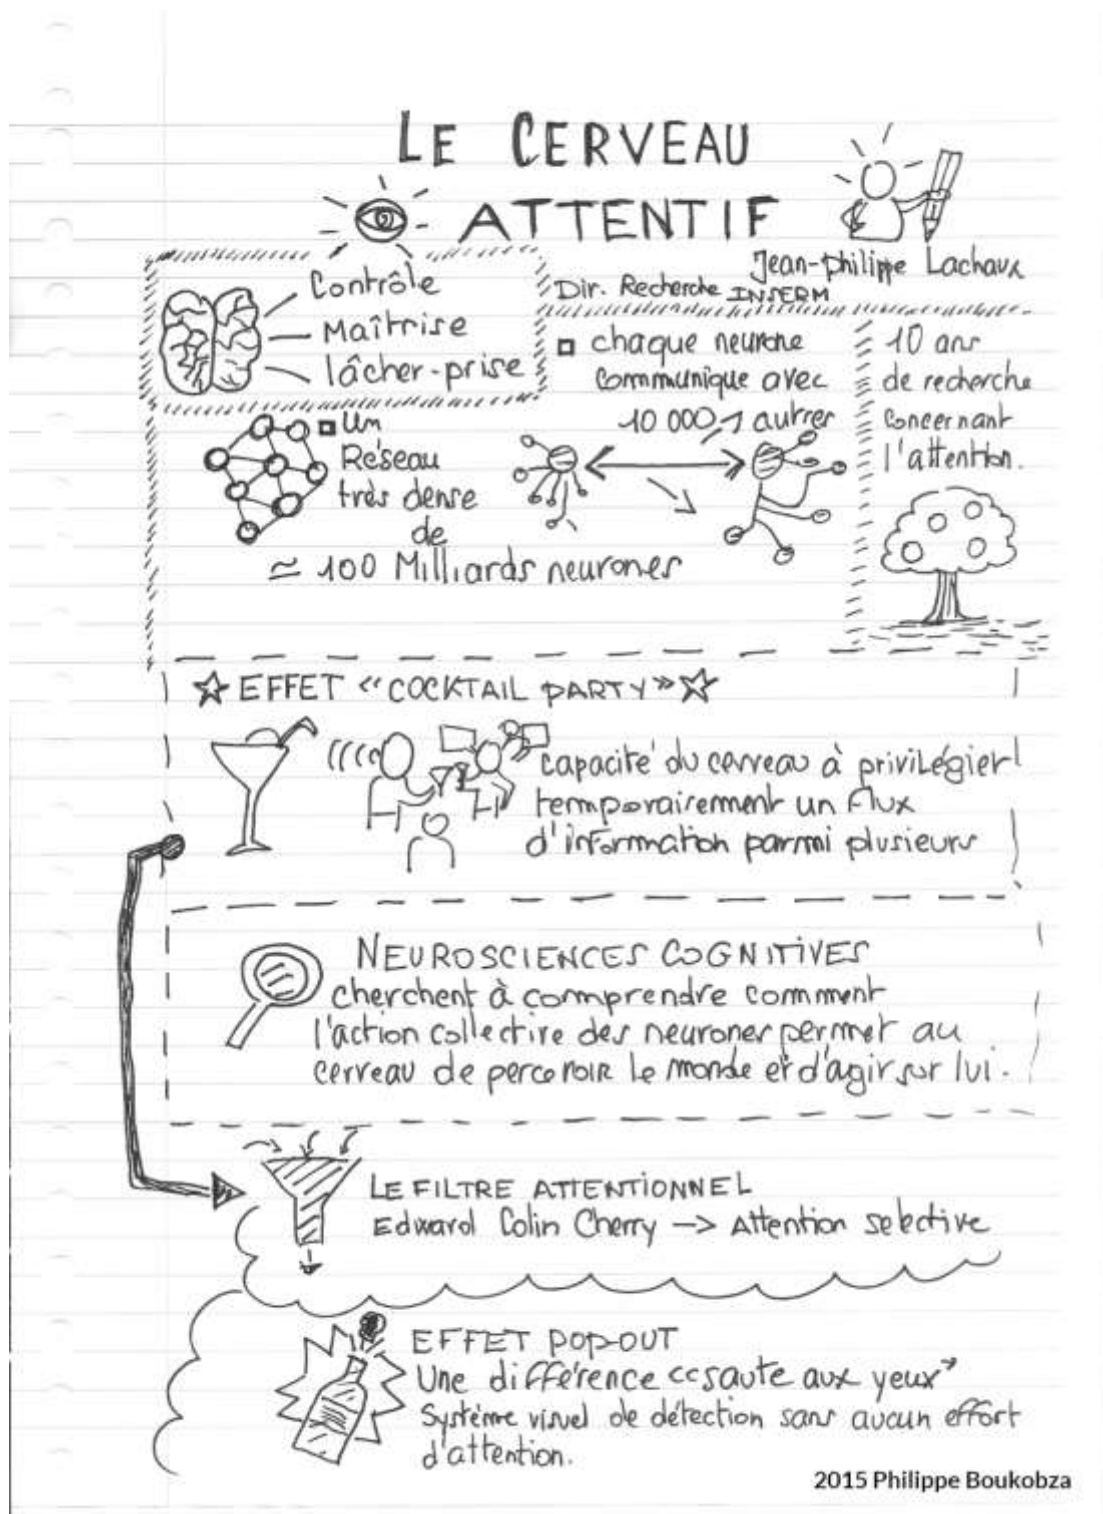 LE CERVEAU
ATTENTIF
Jean-Philippe Lachaux
Dir. Recherche INSERM
Contrôle
Maîtrise
lâcher-prise
chaque neurone
communique avec
10 000 autres
10 ans
de recherche
concernant
l'attention.
Un
Réseau
très dense
de
≃ 100 Milliards neurones
EFFET "COCKTAIL PARTY"
capacité du cerveau à privilégier
temporairement un flux
d'information parmi plusieurs
NEUROSCIENCES COGNITIVES
cherchent à comprendre comment
l'action collective des neurones permet au
cerveau de percevoir le monde et d'agir sur lui.
LE FILTRE ATTENTIONNEL
Edward Colin Cherry -> Attention selective
EFFET POP-OUT
Une différence "saute aux yeux"
Système visuel de détection sans aucun effort
d'attention.
2015 Philippe Boukobza